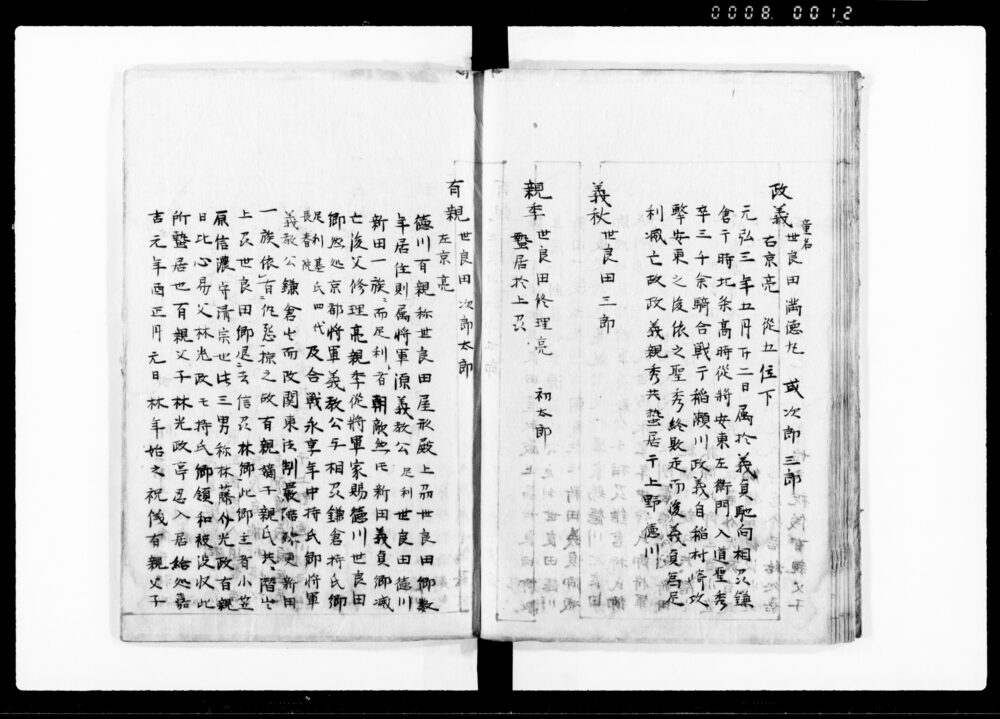 0008.0012
政義 童名 世良田 満徳丸 或次郎三郎
右京亮 従五位下
元弘三年五月廿二日属於義貞馳向相刕鎌
倉于時北条高時従將安東左衛門入道聖秀
卒三千余騎合戦于稲瀬川政義自稲村
撃安東之後依之聖秀終敗走而後義貞為足
利滅亡故政義親秀共蟄居于上野德川
義秋 世良田三郎
親季 世良田修理亮 初太郎
蟄居於上刕
有親 世良田次郎太郎
左京亮
德川有親称世良田屋形殿上刕世良田郷数
年居住則属將軍源義教公足利世良田德川
新田一族而足利者朝敵然氏新田義貞卿滅
亡後父修理亮親季從將軍家賜德川世良田
卿然処京都將軍義教公与相刕鎌倉持氏卿
足利基氏四代長春院及合戦永享年中持氏卿將軍
義教公鎌倉而改関東法制最階弥更新田
一族依有仇悪揀之故有親嫡子親氏共潜
上刕世良田卿退去信刕林郷此郷主者小笠
原信濃守清宗也此三男称林藤助光政有親
日比心易父林光政モ持氏卿領和被没収此
所蟄居也有親父子林光政亭忍入居給処嘉
吉元年酉正月元日林年始之祝儀有親父子